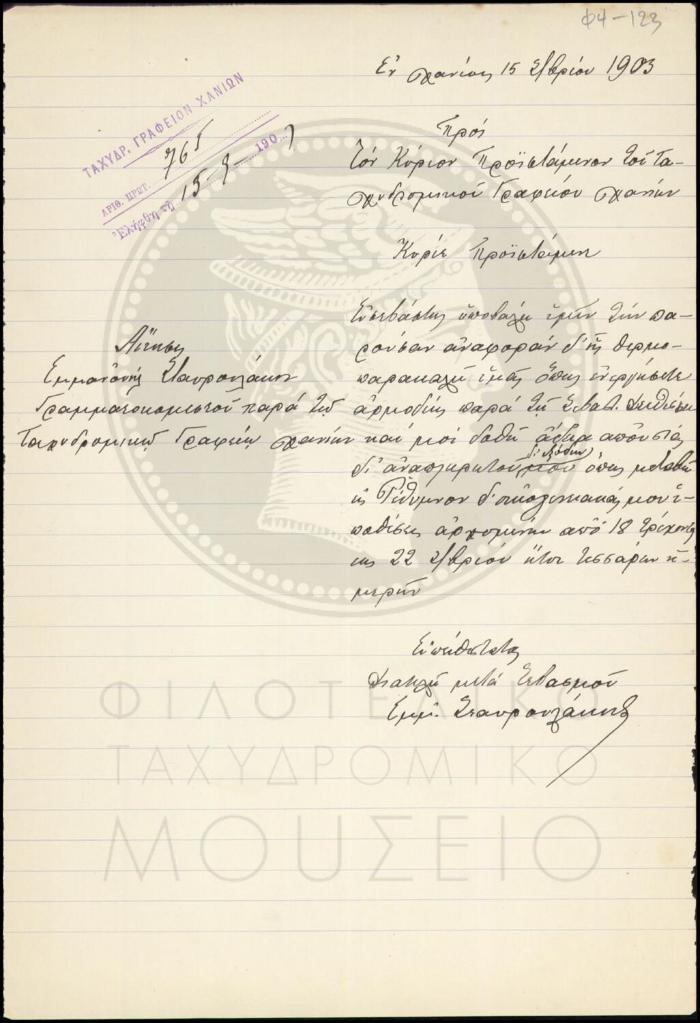 Φ4-123
Ἐν Χανίοις 15 7/βρίου 1903
ΤΑΧΥΔΡ. ΓΡΑΦΕΙΟΝ ΧΑΝΙΩΝ
ΑΡΙΘ. ΠΡΩΤ. 765
Ἐλήφθη τῇ 15-9-190
Πρός
Τόν Κύριον Προϊστάμενον τοῦ Τα-
χυδρομικοῦ Γραφείου Χανίων
Κύριε Προϊστάμενε
Αἴτησις
Ἐμμανουήλ Σταυρουλάκη
Γραμματοκομιστοῦ παρά τῷ
Ταχυδρομικῷ Γραφείῳ Χανίων
Εὐσεβάστως ὑποβάλω ὑμῖν τήν πα-
ροῦσαν ἀναφοράν δι' ἧς θερμο-
παρακαλῶ ὑμᾶς ὅπως ἐνεργήσετε
ἁρμοδίως παρά τῇ Σεβατ. Διευθύνσει
καί μοι δοθῇ ἄδεια ἀπουσίας
δι' ἀναπληρωτοῦ μου ὅπως μεταβῶ
εἰς Ρέθυμνον δι' οἰκογενειακάς μου ὑ-
ποθέσεις ἀρχομένην ἀπό 18 τρέχοντος
ἕως 22 7/βρίου ἤτοι τεσσάρων ἡ-
μερῶν
Εὐπειθέστατος
Διατελῶ μετά Σεβασμοῦ
Ἐμμ. Σταυρουλάκης
ΦΙΛΟΤΕΛΙΚΟ
ΤΑΧΥΔΡΟΜΙΚΟ
ΜΟΥΣΕΙΟ